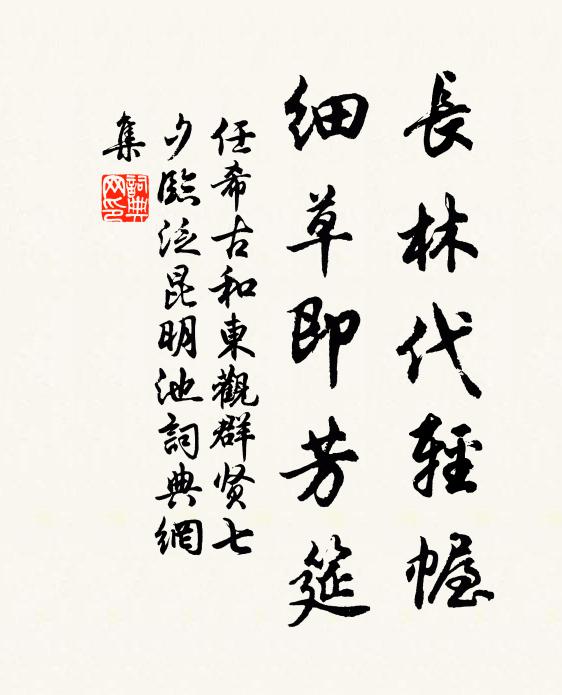 長林代輕幄
細草即芳筵
任希古和東觀群贤七
夕臨泛昆明池詞典網
集
詞典网印